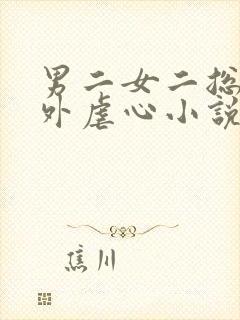 男二女二总
外虐心小說
焦川